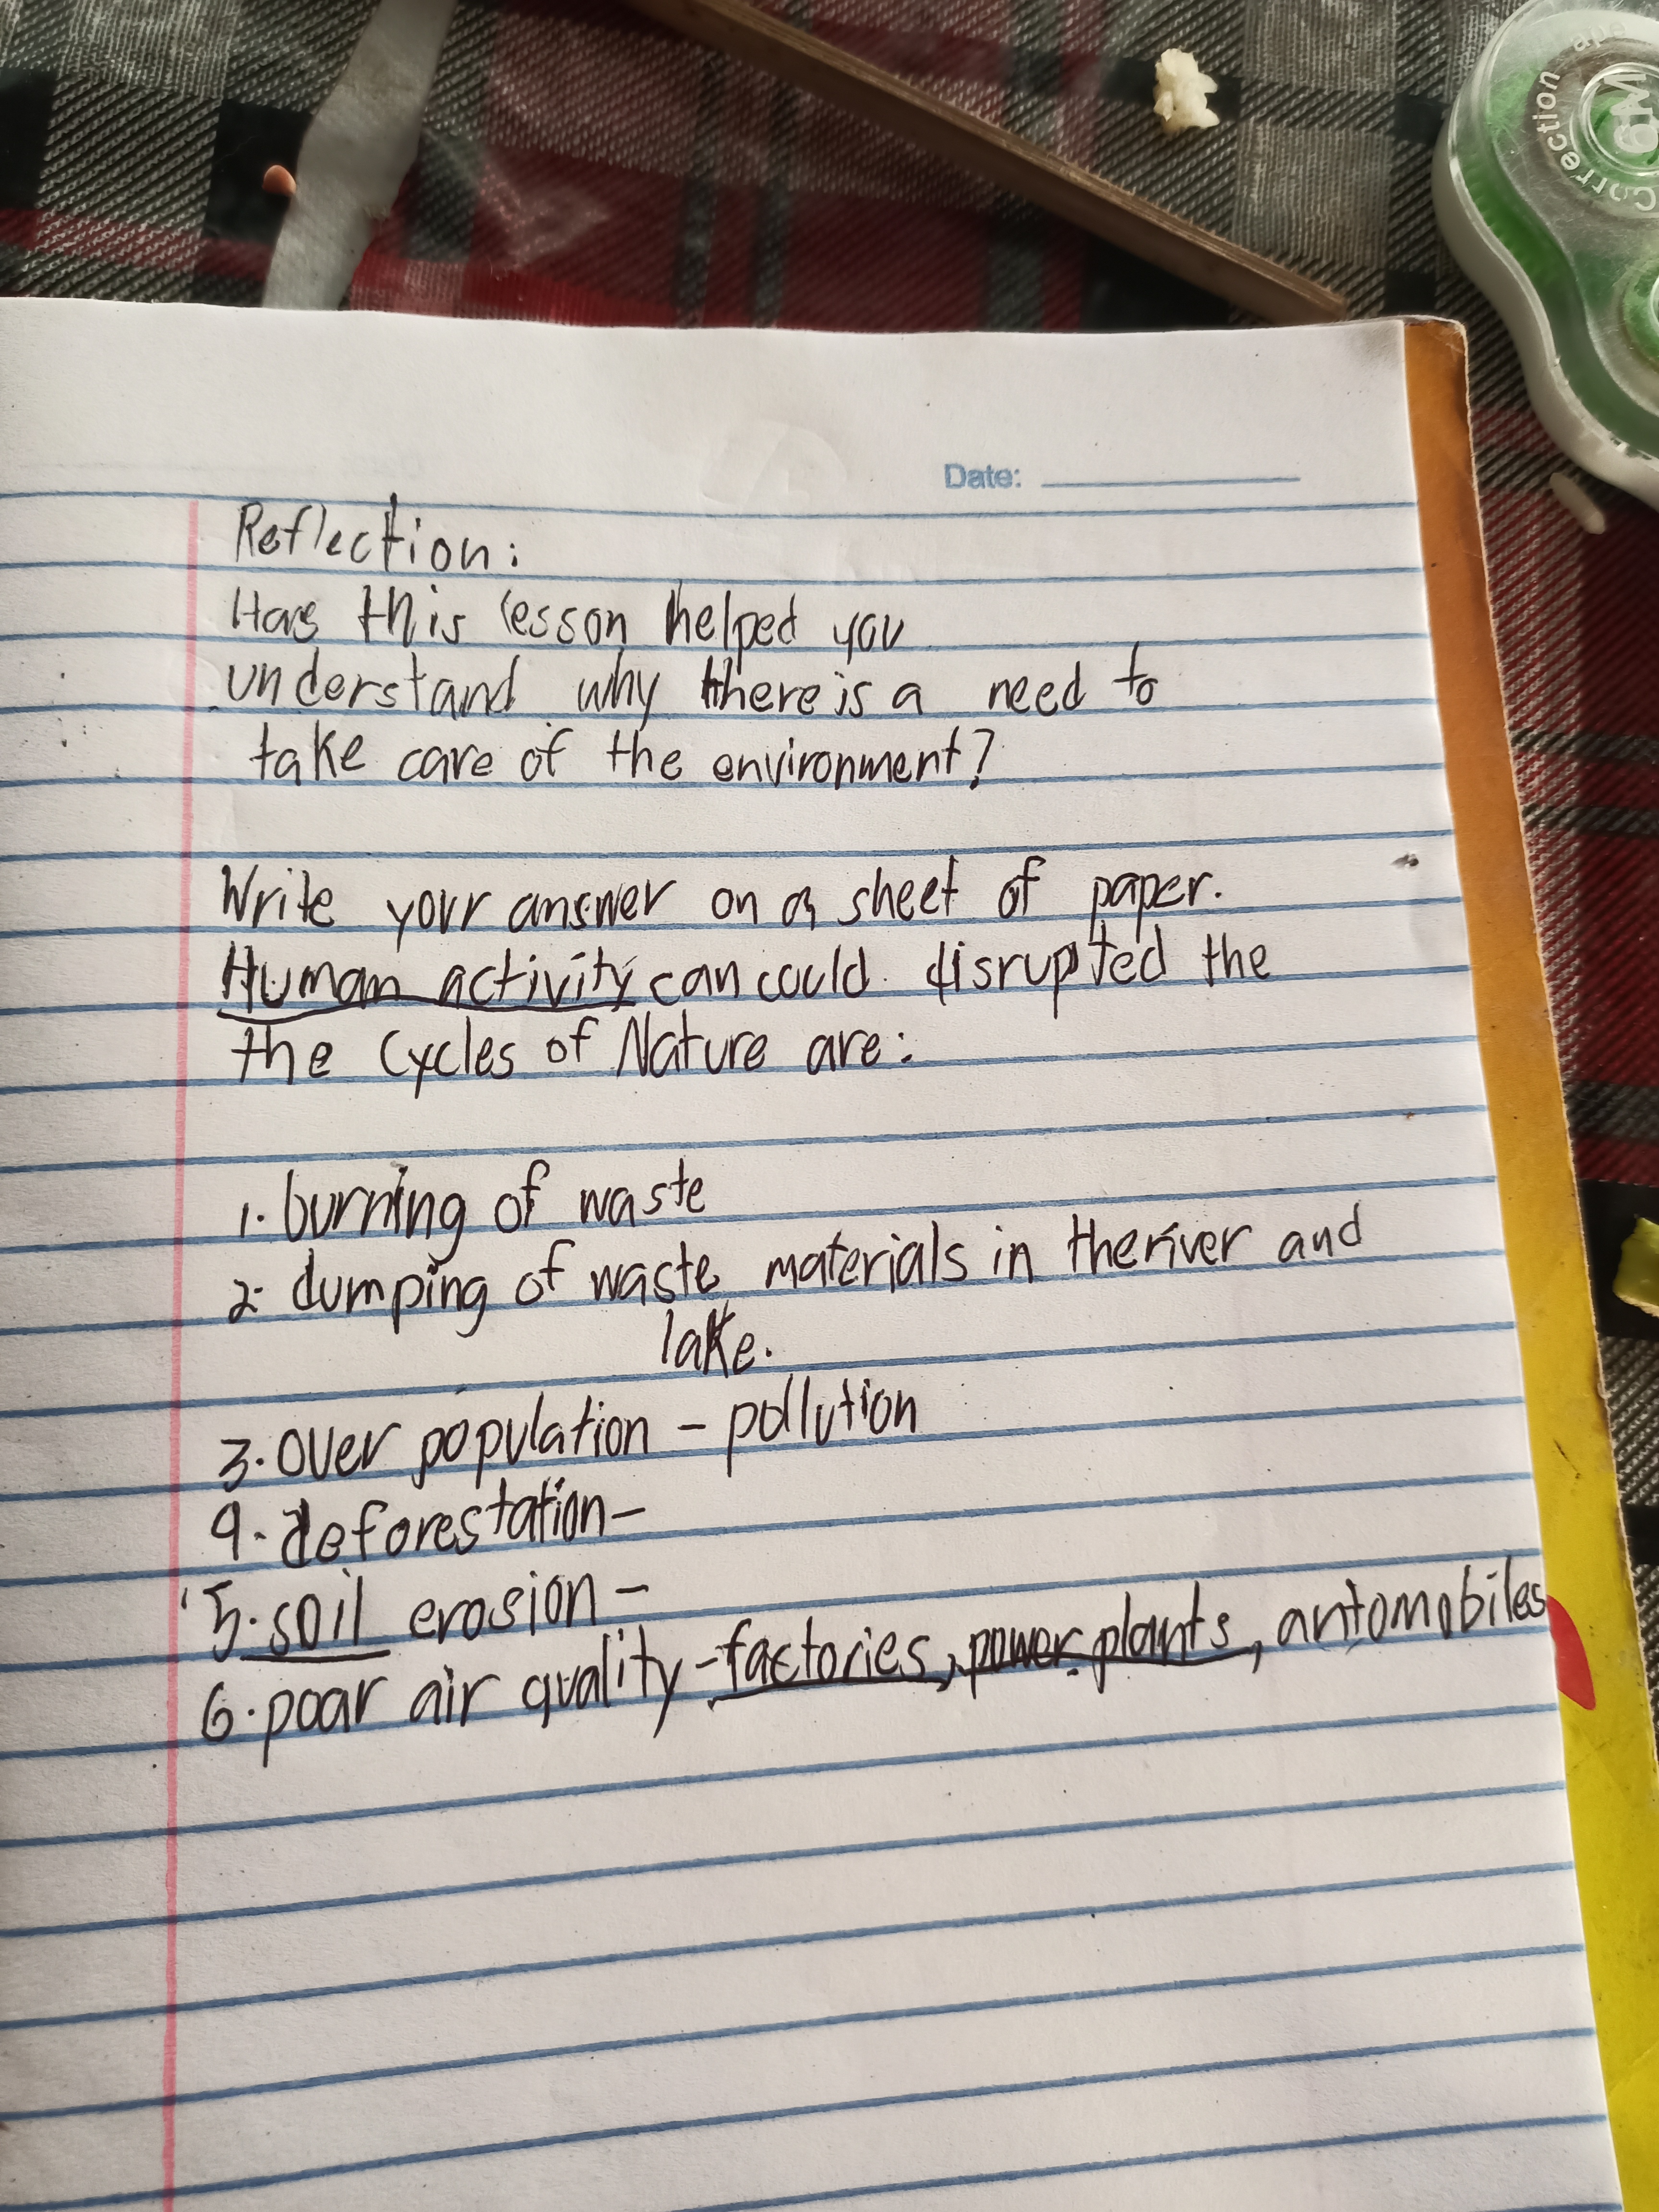 Correction
Date:
Reflection:
Has this lesson helped you
understand why there is a need to
take care of the environment?
Write your answer on a sheet of paper.
Human activity can could disrupted the
the Cycles of Nature are:
1. burning of waste
2. dumping of waste materials in the river and
lake.
3. over population - pollution
4. deforestation-
5. soil erosion -
6. poar air quality - factories, power plants, automobiles